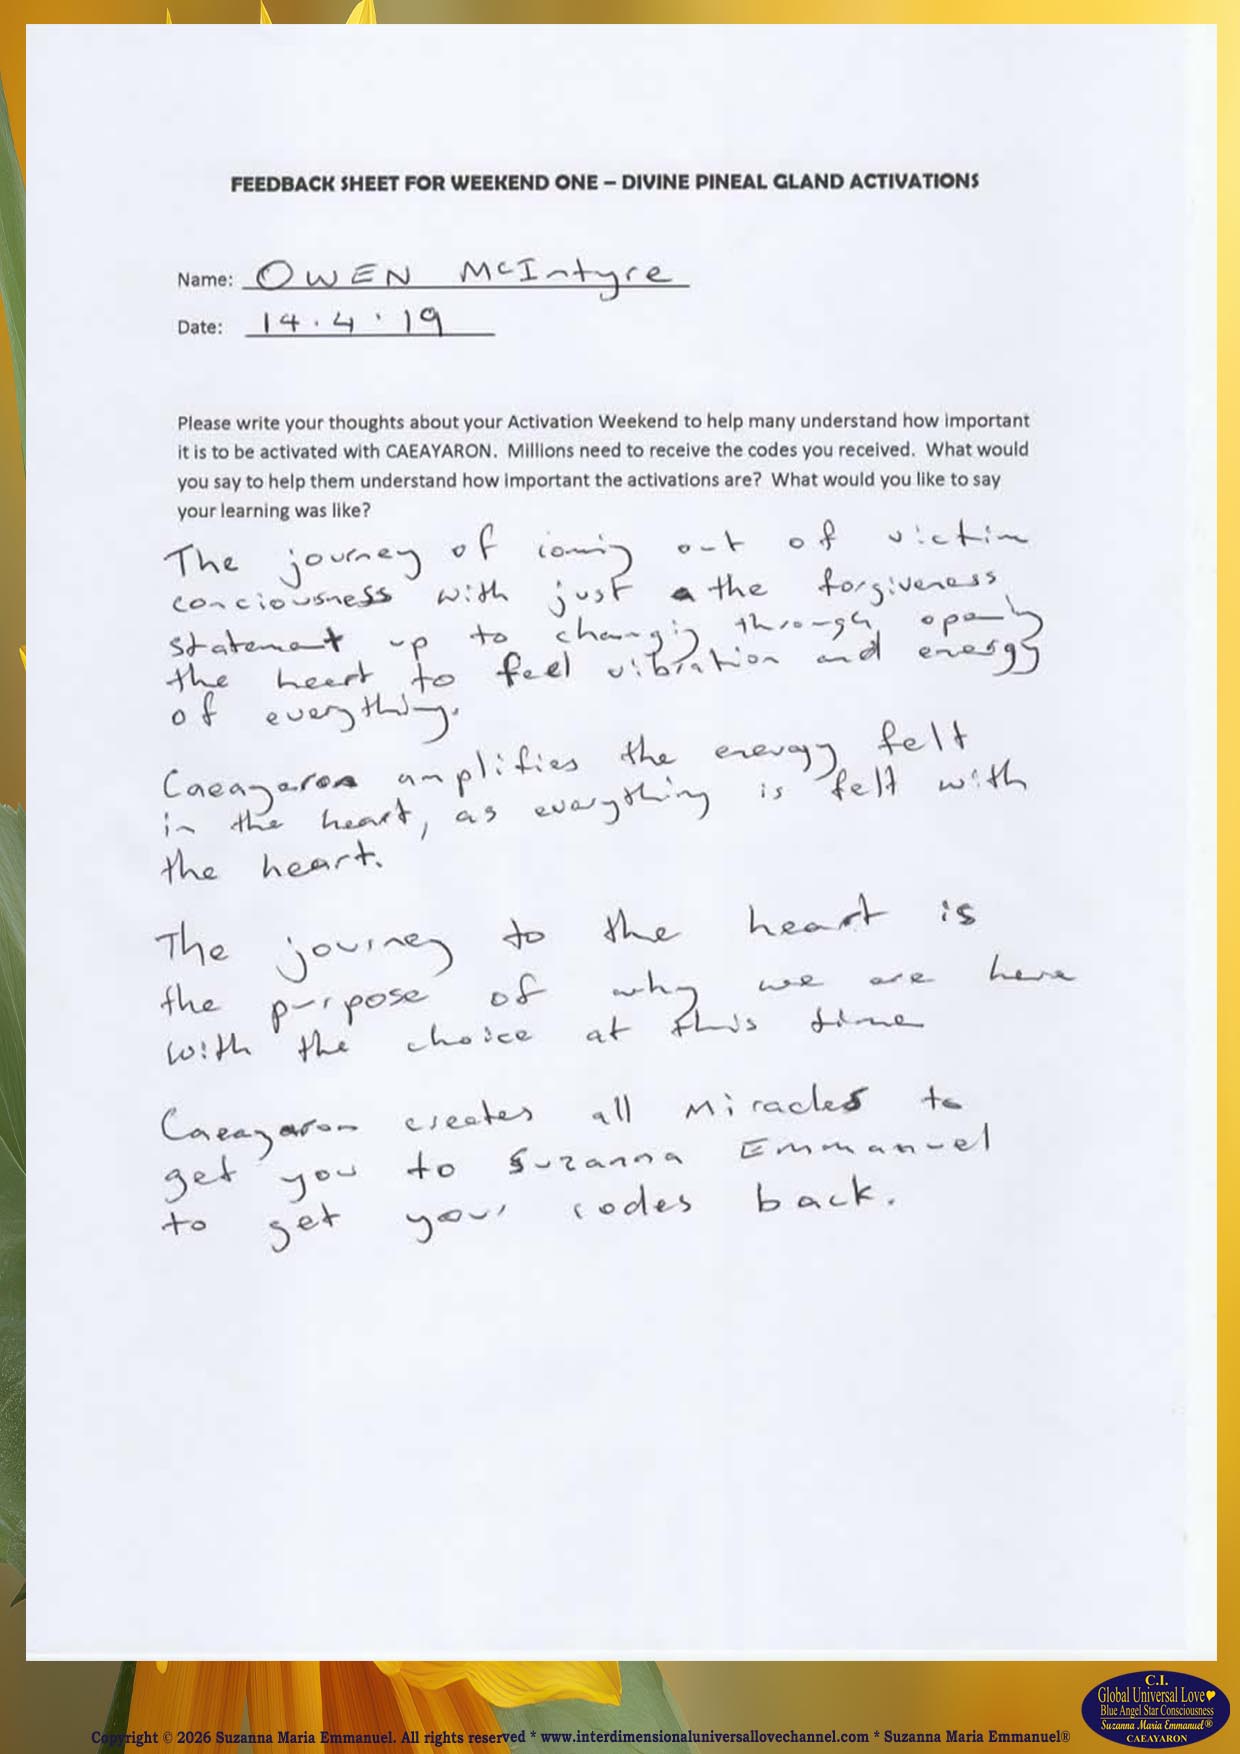 FEEDBACK SHEET FOR WEEKEND ONE – DIVINE PINEAL GLAND ACTIVATIONS
Name: OWEN McIntyre
Date: 14.4.19
Please write your thoughts about your Activation Weekend to help many understand how important
it is to be activated with CAEAYARON. Millions need to receive the codes you received. What would
you say to help them understand how important the activations are? What would you like to say
your learning was like?
The journey of coming out of victim
conciousness with just the forgiveness
statement up to changig through openly
the heart to feel vibration and energy
of everything.
Caeayaron amplifies the energy felt
in the heart, as everything is felt with
the heart.
The journey to the heart is
the purpose of why we are here
with the choice at this time
Caeayaron creates all Miracles to
get you to Suzanna Emmanuel
to get your codes back.
C.I.
Global Universal Love
Blue Angel Star Consciousness
Suzanna Maria Emmanuel®
CAEAYARON
Copyright © 2026 Suzanna Maria Emmanuel. All rights reserved * www.interdimensionaluniversallovechannel.com * Suzanna Maria Emmanuel®